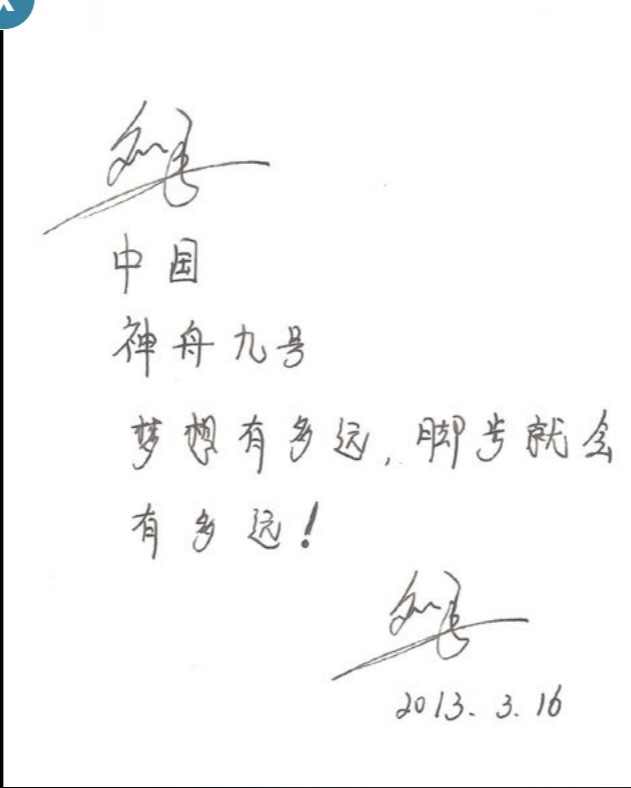 中国
神舟九号
梦想有多远,脚步就会
有多远!
2013.3.16